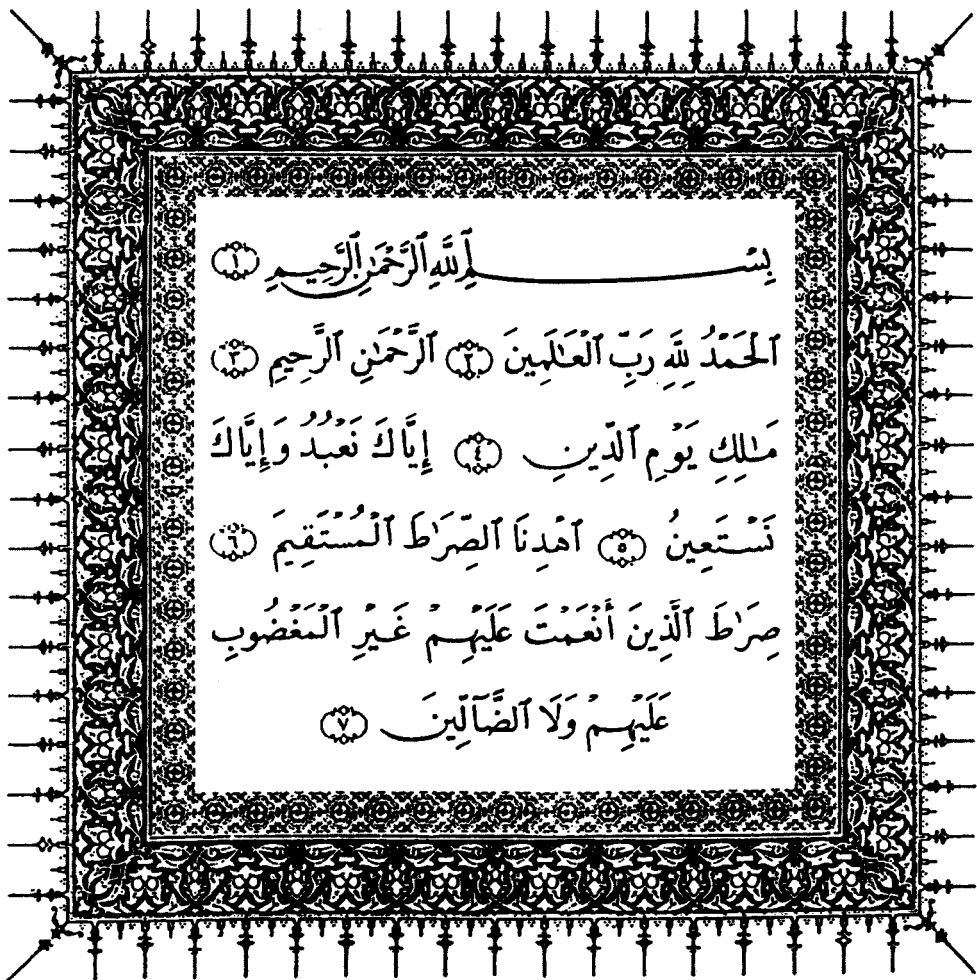 بِسْمِ ٱللَّهِ ٱلرَّحْمَٰنِ ٱلرَّحِيمِ ١
ٱلْحَمْدُ لِلَّهِ رَبِّ ٱلْعَٰلَمِينَ ٢ ٱلرَّحْمَٰنِ ٱلرَّحِيمِ ٣
مَٰلِكِ يَوْمِ ٱلدِّينِ ٤ إِيَّاكَ نَعْبُدُ وَإِيَّاكَ
نَسْتَعِينُ ٥ ٱهْدِنَا ٱلصِّرَٰطَ ٱلْمُسْتَقِيمَ ٦
صِرَٰطَ ٱلَّذِينَ أَنْعَمْتَ عَلَيْهِمْ غَيْرِ ٱلْمَغْضُوبِ
عَلَيْهِمْ وَلَا ٱلضَّآلِّينَ ٧